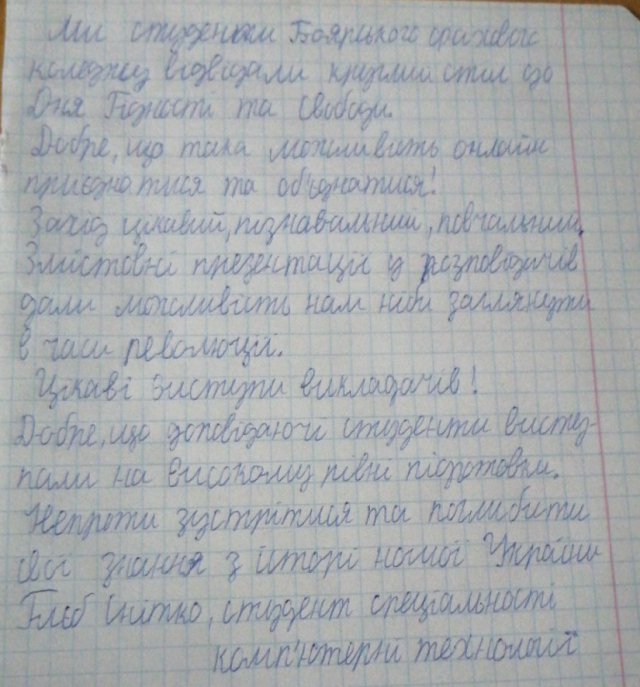 Ми студенти Боярського фахового
коледжу відвідали круглий стіл до
Дня Гідності та Свободи.
Добре, що така можливість онлайн
приєднатися та об'єднатися!
Захід цікавий, пізнавальний, повчальний.
Змістовні презентації у розповідачів
дали можливість нам ніби заглянути
в часи революції.
Цікаві виступи викладачів!
Добре, що доповідаючі студенти висту-
пали на високому рівні підготовки.
Непроти зустрітися та поглибити
свої знання з історі нашої України
Глєб Снітко, студент спеціальності
комп'ютерні технології